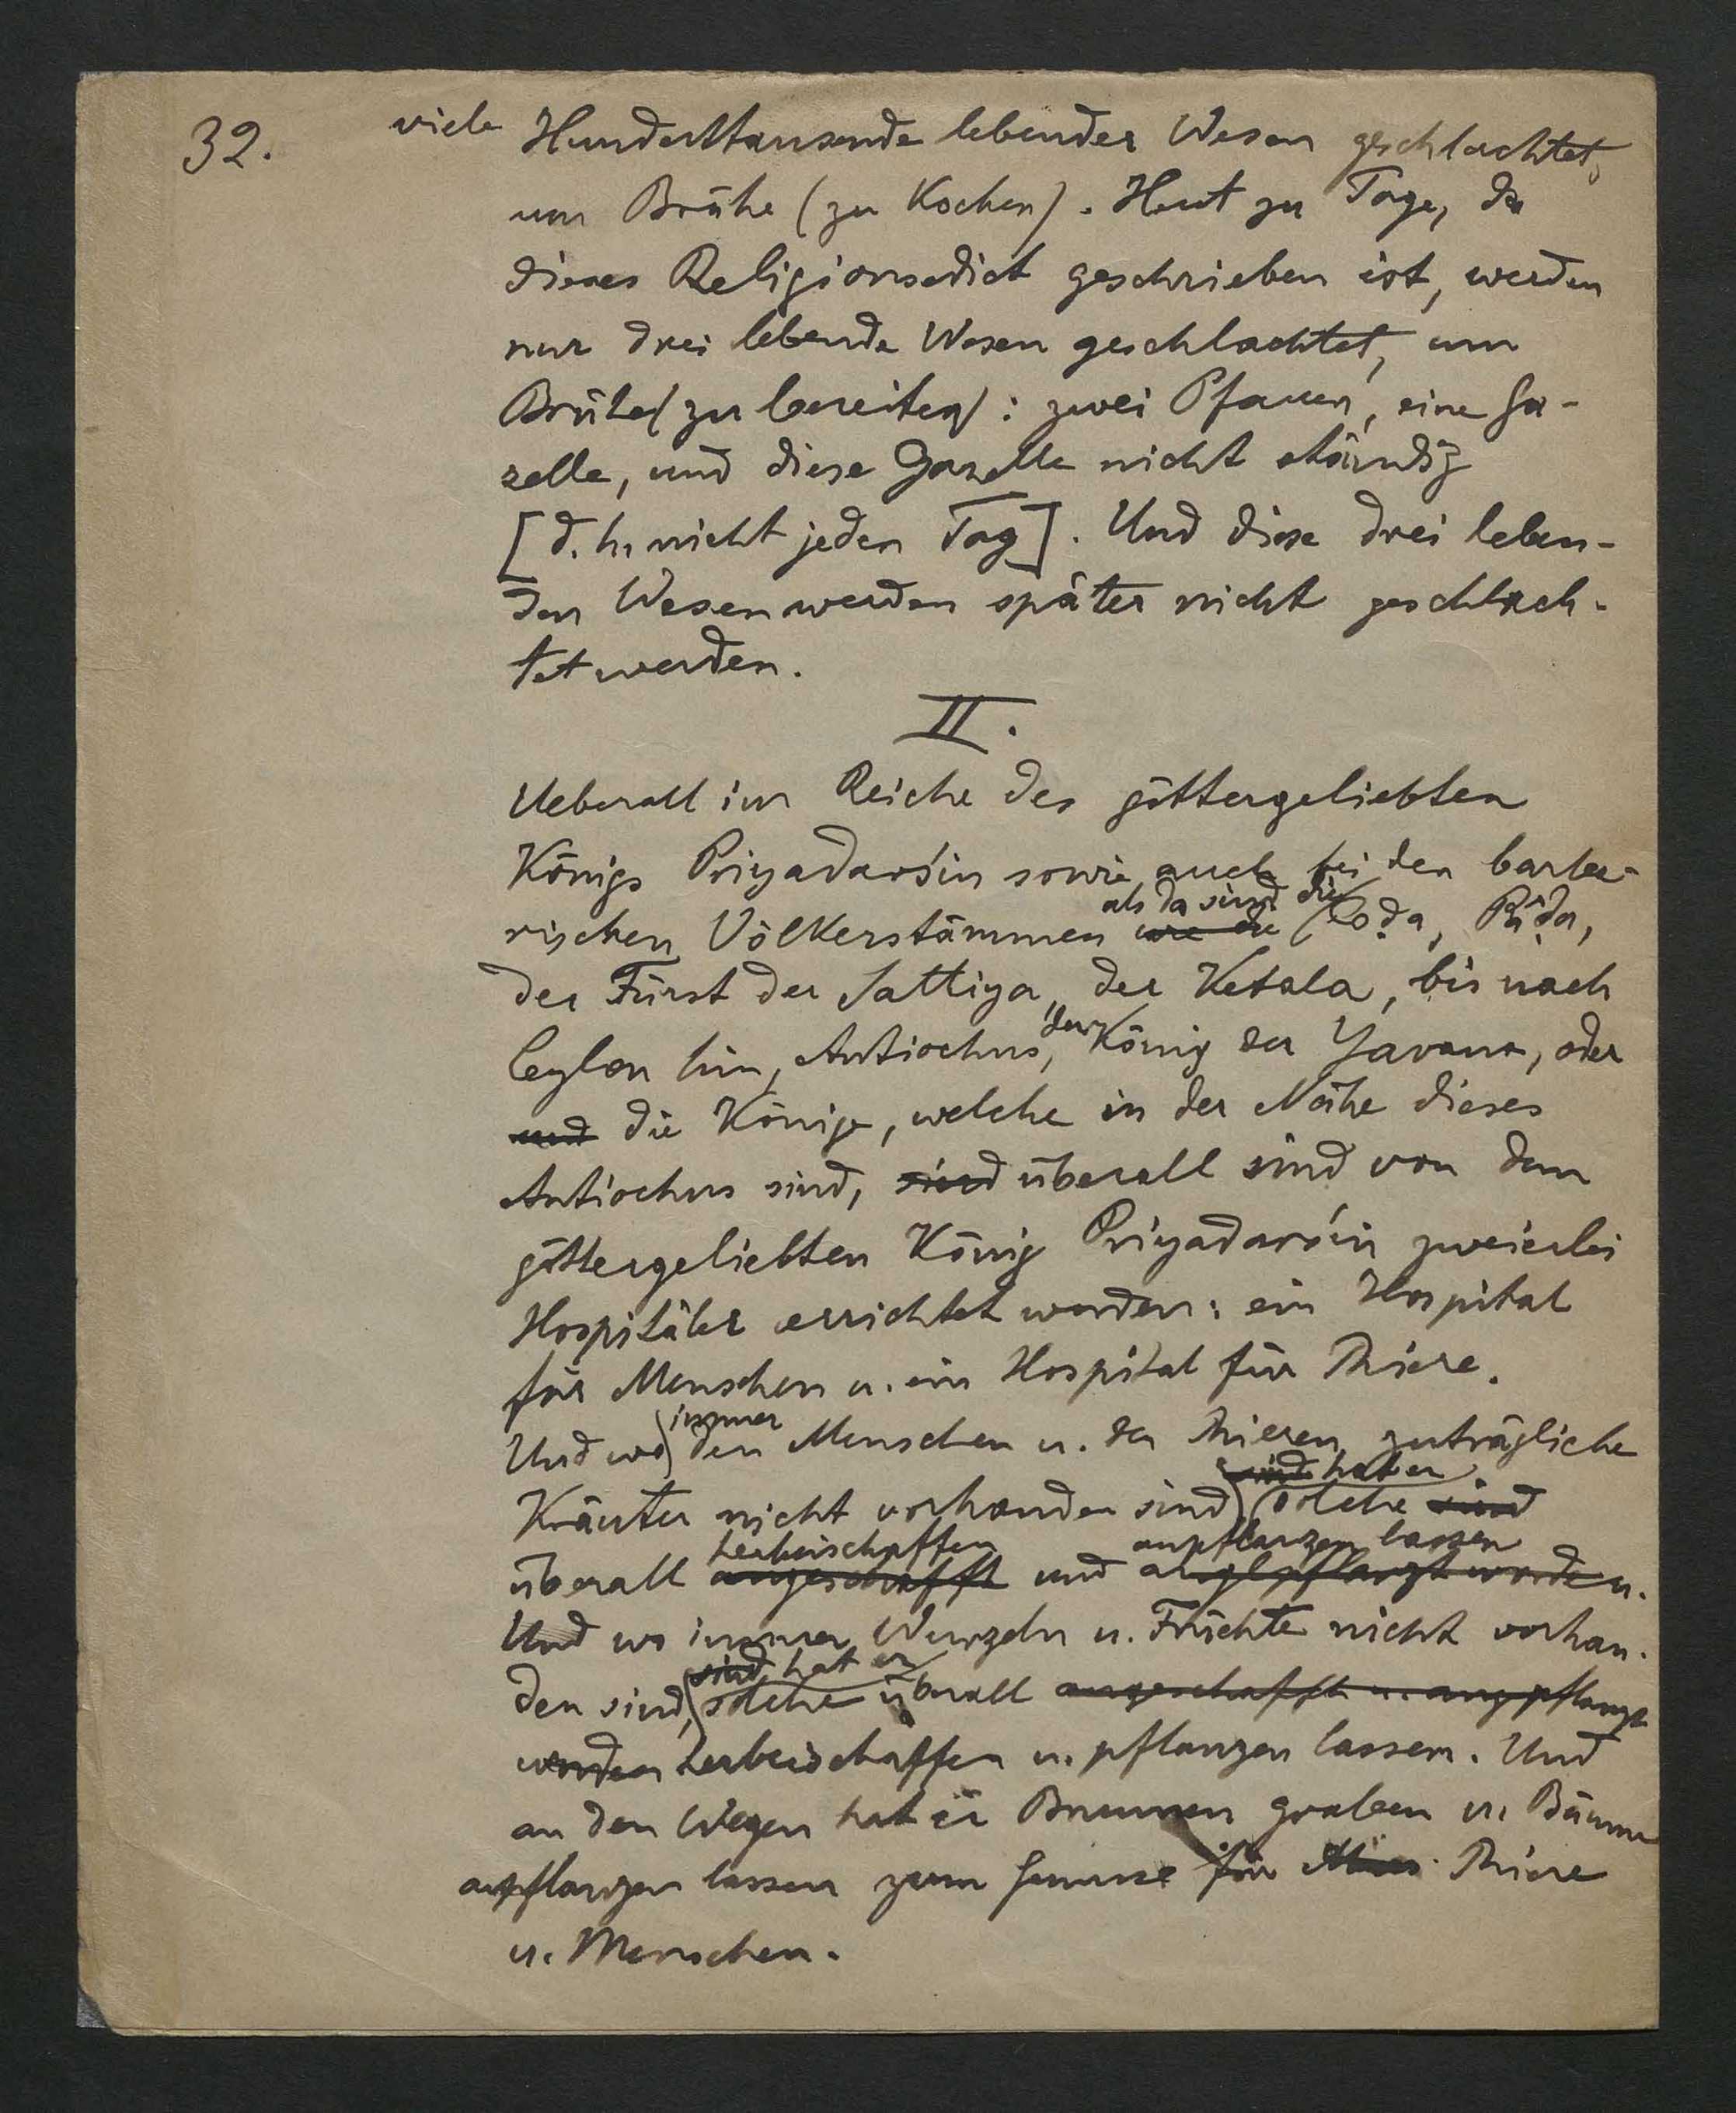 32.
viele Hunderttausende lebender Wesen geschlachtet,
um Brühe (zu Kochen). Heut zu Tage, da
dieses Religionsedict geschrieben ist, werden
nur drei lebende Wesen geschlachtet, um
Brühe (zu bereiten): zwei Pfauen, eine Ga-
zelle, und diese Gazelle nicht ständig
[d. h. nicht jeden Tag]. Und diese drei leben-
den Wesen werden später nicht geschlach-
tet werden.
II.
Ueberall im Reiche des göttergeliebten
Königs Priyadarśin sowie auch bei den barba-
als da sind die
rischen Völkerstämmen wie die Coḍa, Pâḍa,
der Fürst der Sattiya, der Ketala, bis nach
Ceylon hin, Antiochus, der König der Yavana, oder
und die Könige, welche in der Nähe dieses
Antiochus sind, sind überall sind von dem
göttergeliebten König Priyadarśin zweierlei
Hospitäler errichtet worden: ein Hospital
für Menschen u. ein Hospital für Thiere.
immer
Und wo den Menschen u. den Thieren zuträgliche
sind hat er
Kräuter nicht vorhanden sind solche sind
herbeischaffen anpflanzen lassen
überall angeschafft und angepflanzt worden.
Und wo immer Wurzeln u. Früchte nicht vorhan-
sind hat er
den sind, solche überall angeschafft u. angepflanzt
worden herbeischaffen u. pflanzen lassen. Und
an den Wegen hat er Brunnen graben u. Bäume
anpflanzen lassen zum Genusse für Thiere
u. Menschen.